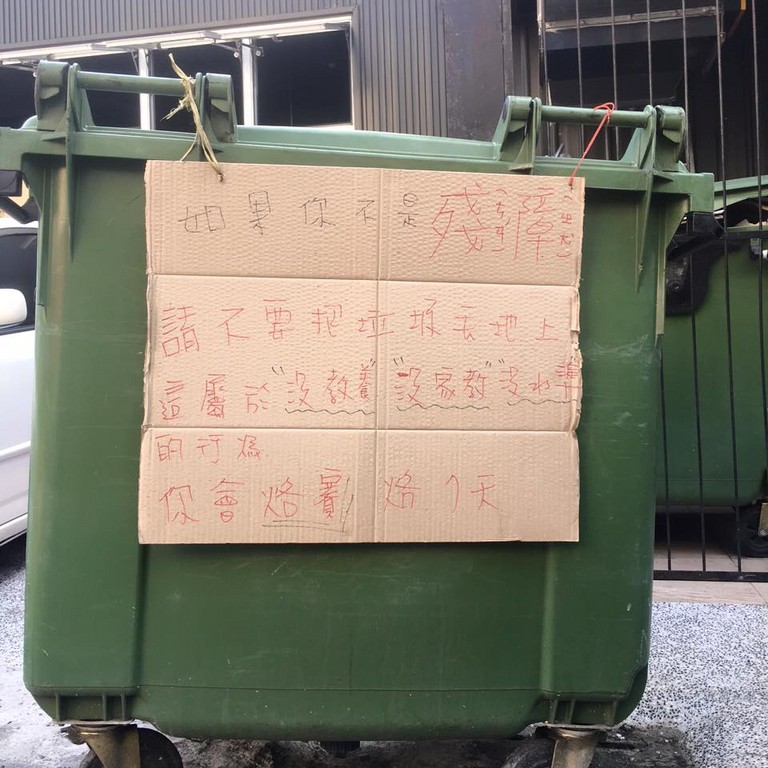 如果你不是殘障
請不要把垃圾丟地上
這屬於"沒教養""沒家教"沒水準
的行為
你會烙賽! 烙7天